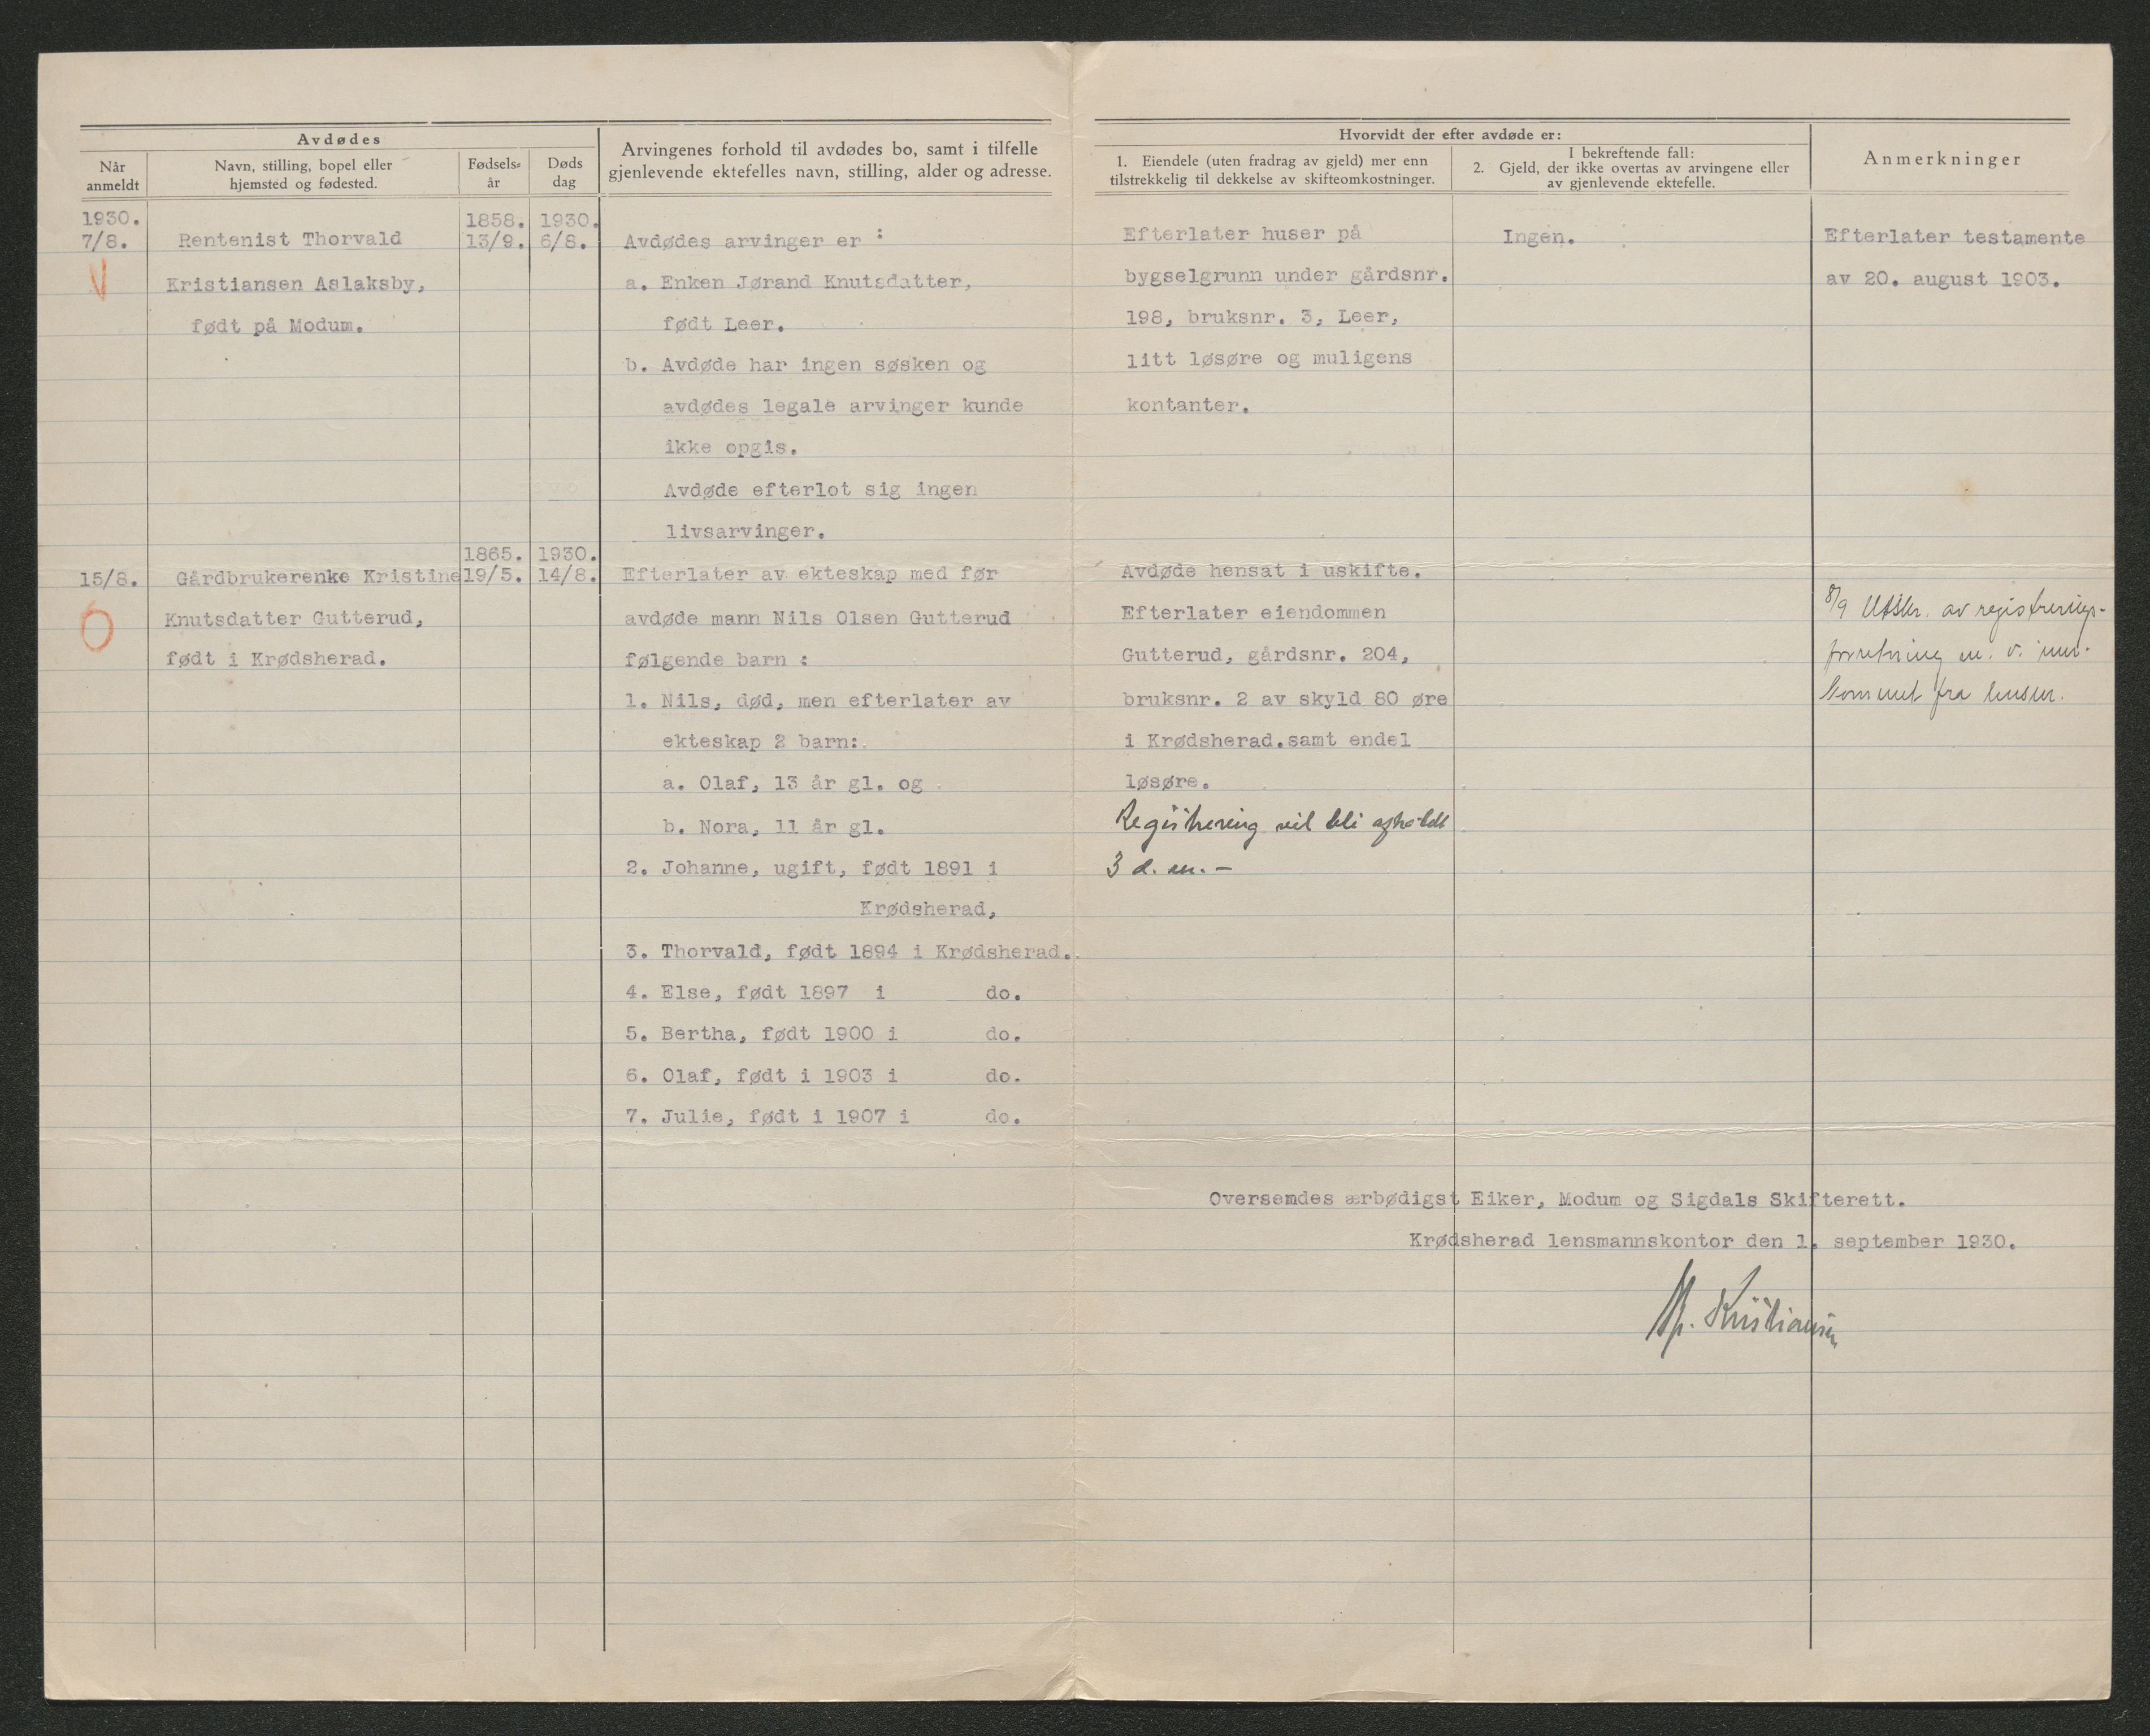 Avdødes
Når anmeldt
Navn, stilling, bopel eller hjemsted og fødested.
Fødsels- år
Døds dag
Arvingenes forhold til avdødes bo, samt i tilfelle
gjenlevende ektefelles navn, stilling, alder og adresse.
Hvorvidt der efter avdøde er:
1. Eiendele (uten fradrag av gjeld) mer enn
tilstrekkelig til dekkelse av skifteomkostninger.
I bekreftende fall:
2. Gjeld, der ikke overtas av arvingene eller
av gjenlevende ektefelle.
Anmerkninger
1930.
7/8.
Rentenist Thorvald
Kristiansen Aslaksby,
født på Modum.
1858.
13/9.
1930.
6/8.
Avdødes arvinger er :
a. Enken Jørand Knutsdatter,
født Leer.
b. Avdøde har ingen søsken og
avdødes legale arvinger kunde
ikke opgis.
Avdøde efterlot sig ingen
livsarvinger.
Efterlater huser på
bygselgrunn under gårdsnr.
198, bruksnr. 3, Leer,
litt løsøre og muligens
kontanter.
Ingen.
Efterlater testamente
av 20. august 1903.
15/8.
Gårdbrukerenke Kristine
Knutsdatter Gutterud,
født i Krødsherad.
1865.
19/5.
1930.
14/8.
Efterlater av ekteskap med før
avdøde mann Nils Olsen Gutterud
følgende barn :
1. Nils, død, men efterlater av
ekteskap 2 barn:
a. Olaf, 13 år gl. og
b. Nora, 11 år gl.
2. Johanne, ugift, født 1891 i
Krødsherad,
3. Thorvald, født 1894 i Krødsherad.
4. Else, født 1897 i do.
5. Bertha, født 1900 i do.
6. Olaf, født i 1903 i do.
7. Julie, født i 1907 i do.
Avdøde hensat i uskifte.
Efterlater eiendommen
Gutterud, gårdsnr. 204,
bruksnr. 2 av skyld 80 øre
i Krødsherad.samt endel
løsøre.
Registrering vil bli avholdt
3 d. m. -
8/9 Utskr. av registrerings-
forretning m. v. inn-
kommet fra lensm.
Oversemdes ærbødigst Eiker, Modum og Sigdals Skifterett.
Krødsherad lensmannskontor den 1. september 1930.
Kristiansen